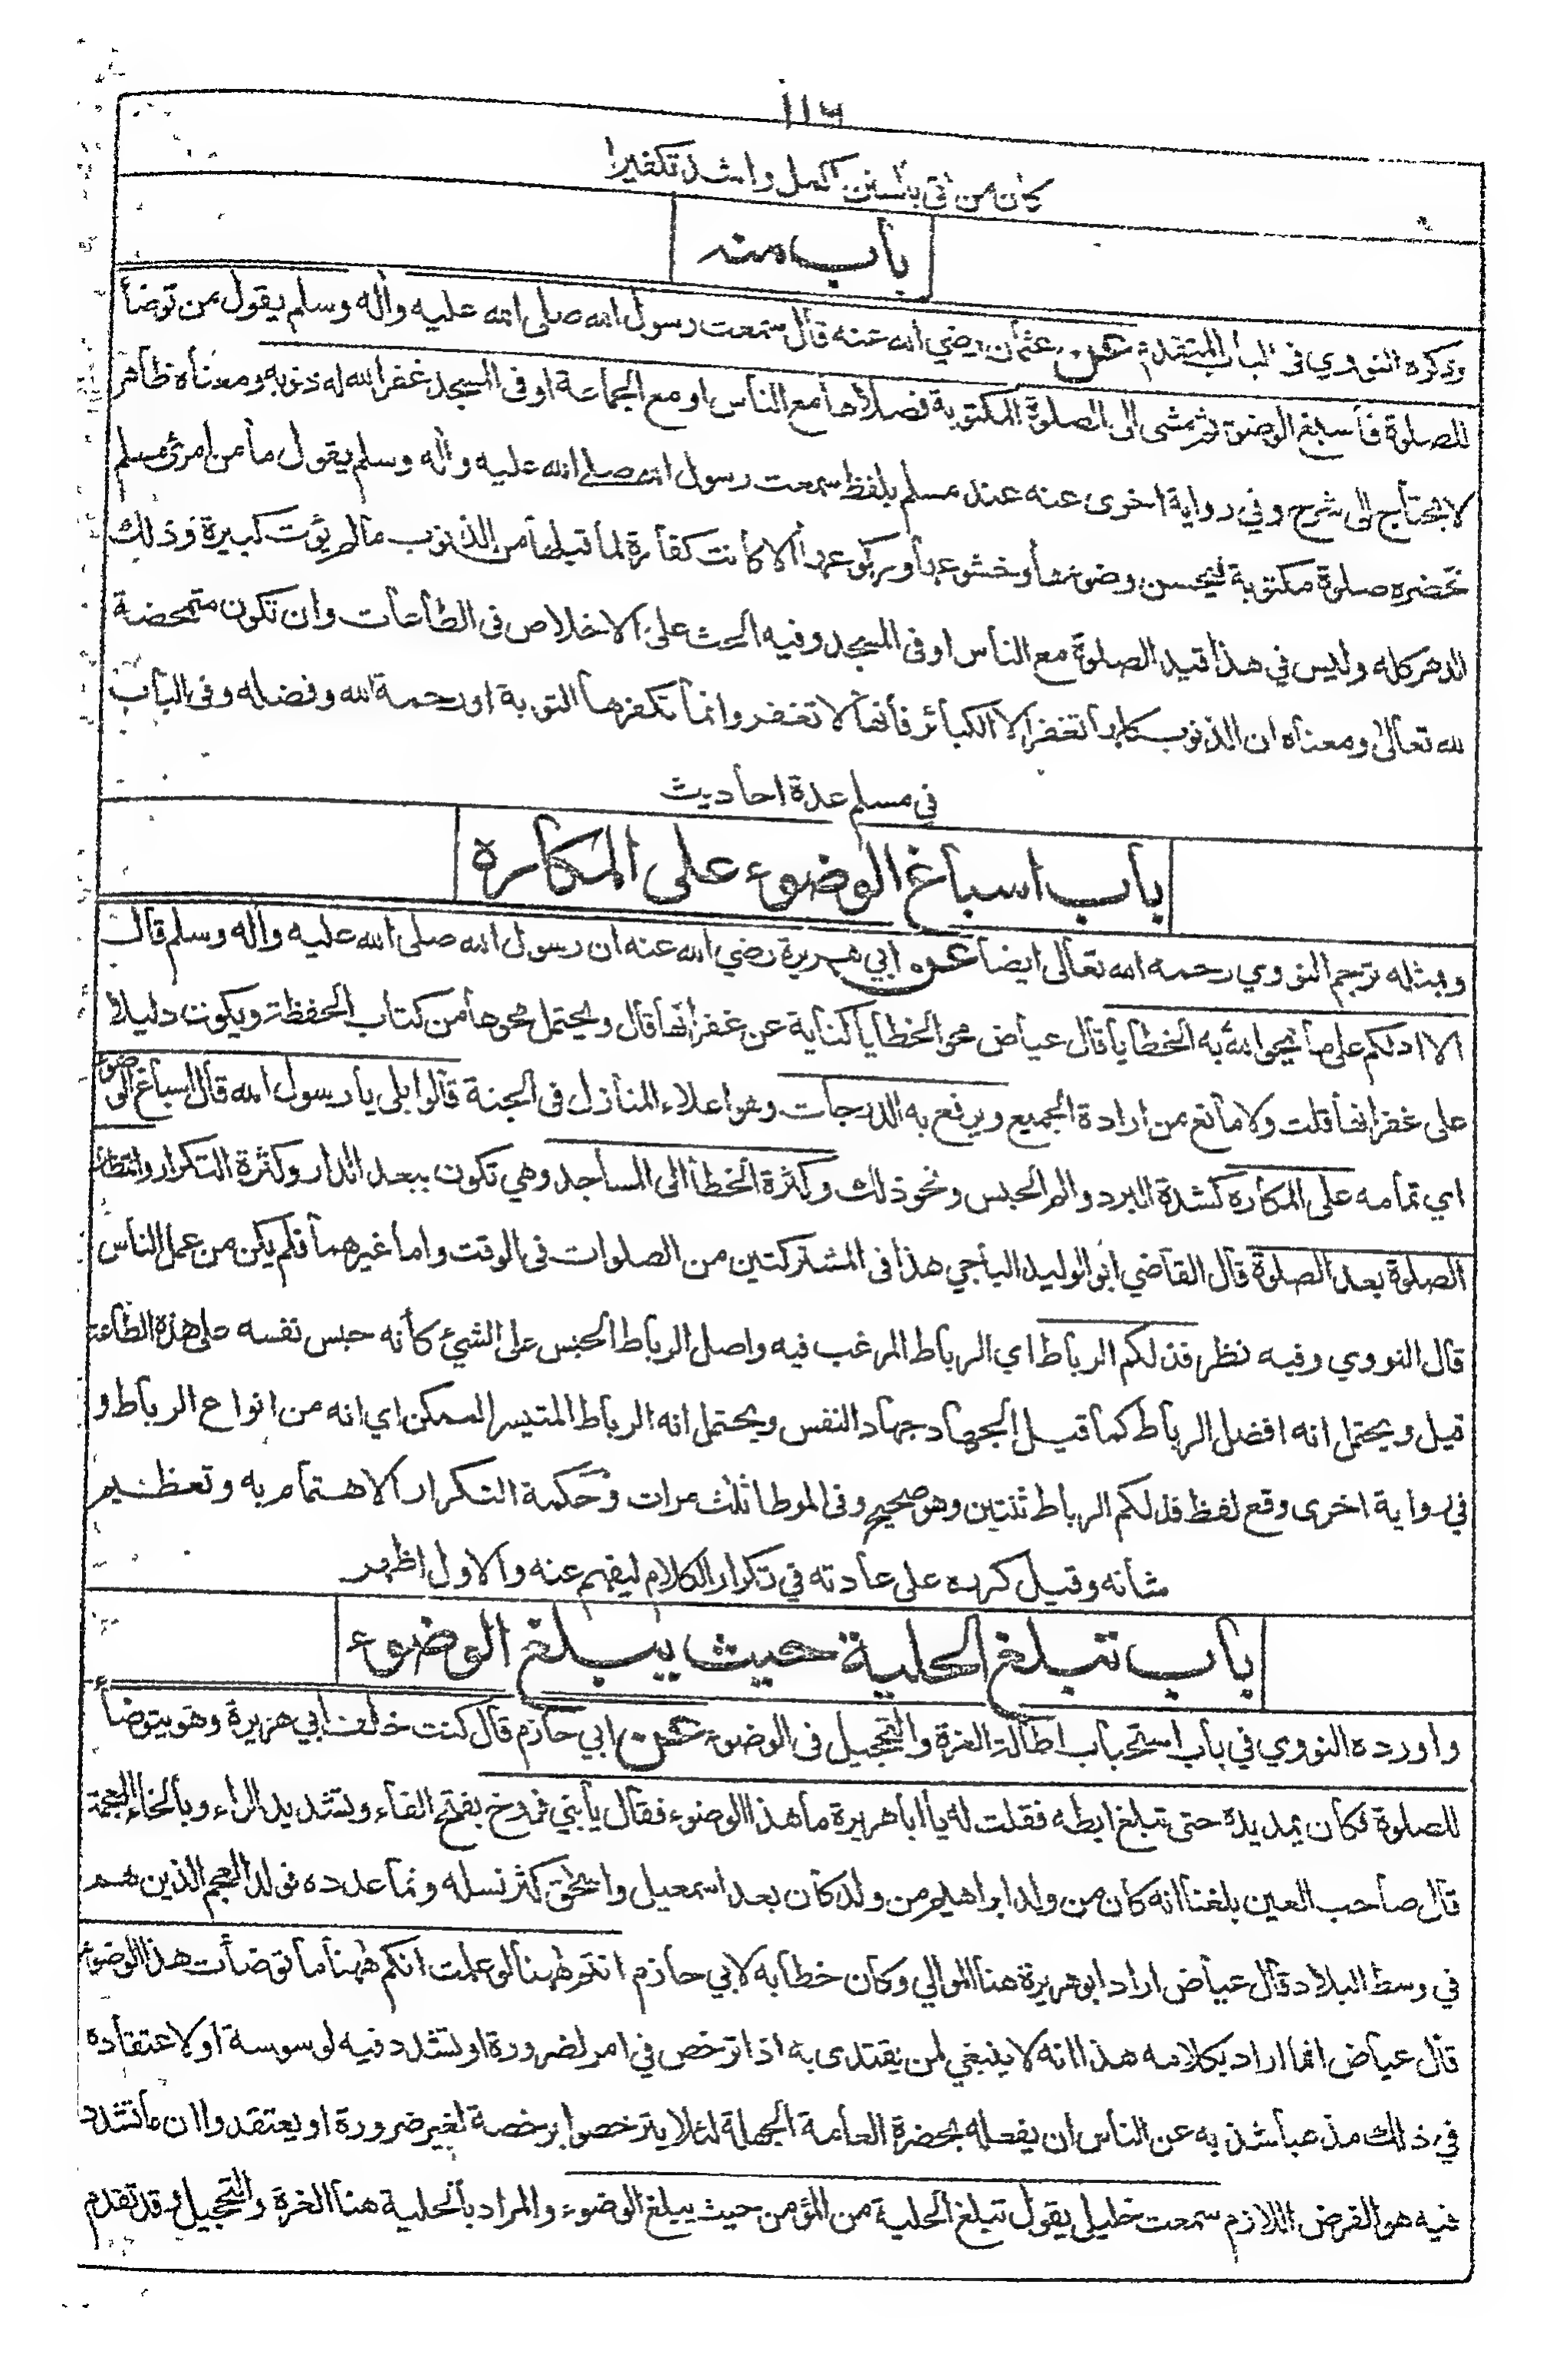 ١١٦
كان من اتى باثنين اكمل واشد تكفيرا
باب منه
وذكره النووي في الباب المتقدم عن عثمان رضي الله عنه قال سمعت رسول الله صلى الله عليه وأله وسلم يقول من توضأ
للصلوة فأسبغ الوضوء ثم مشى الى الصلوة المكتوبة فصلاها مع الناس او مع الجماعة او في المسجد غفر الله له ذنوبه ومعناه ظاهر
لا يحتاج الى شرح وفي رواية اخرى عنه عند مسلم بلفظ سمعت رسول الله صلى الله عليه وأله وسلم يقول ما من امرئ مسلم
تحضره صلوة مكتوبة فيحسن وضوءها وخشوعها وركوعها الا كانت كفارة لما قبلها من الذنوب ما لم يؤت كبيرة وذلك
الدهر كله وليس في هذا قيد الصلوة مع الناس او في المسجد وفيه الحث على الاخلاص في الطاعات وان تكون متمحضة
لله تعالى ومعناه ان الذنوب كلها تغفر الا الكبائر فأنها لا تغفر وانما تكفرها التوبة او رحمة الله وفضله وفي الباب
في مسلم عدة احاديث
باب اسباغ الوضوء على المكاره
وبمثله ترجم النووي رحمه الله تعالى ايضا عن ابي هريرة رضي الله عنه ان رسول الله صلى الله عليه وأله وسلم قال
الا ادلكم على ما يمحوا الله به الخطايا قال عياض محو الخطايا كناية عن غفرانها قال ويحتمل محوها من كتاب الحفظة ويكون دليلا
على غفرانها قلت ولا مانع من ارادة الجميع ويرفع به الدرجات وهو اعلاء المنازل في الجنة قالوا بلى يا رسول الله قال اسباغ الوضوء
اي تمامه على المكاره كشدة البرد والم الجسم ونحو ذلك وكثرة الخطا الى المساجد وهي تكون ببعد الدار وكثرة التكرار وانتظار
الصلوة بعد الصلوة قال القاضي ابو الوليد الباجي هذا في المشتركتين من الصلوات في الوقت واما غيرهما فلم يكن من عمل الناس
قال النووي وفيه نظر فذلكم الرباط اي الرباط المرغب فيه واصل الرباط الحبس على الشيئ كأنه حبس نفسه على هذه الطاعة
قيل ويحتمل انه افضل الرباط كما قيل الجهاد جهاد النفس ويحتمل انه الرباط المتيسر الممكن اي انه من انواع الرباط و
في رواية اخرى وقع لفظ فذلكم الرباط ثنتين وهو صحيح وفي الموطا ثلث مرات وحكمة التكرار الاهتمام به وتعظيم
شانه وقيل كرره على عادته في تكرار الكلام ليفهم عنه والاول اظهر
باب تبلغ الحلية حيث يبلغ الوضوء
واورده النووي في باب استحباب اطالة الغرة والتحجيل في الوضوء عن ابي حازم قال كنت خلف ابي هريرة وهو يتوضأ
للصلوة فكان يمد يده حتى تبلغ ابطه فقلت له يا ابا هريرة ما هذا الوضوء فقال يا بني فروخ بفتح الفاء وتشديد الراء وبالخاء المعجمة
قال صاحب العين بلغنا انه كان من ولد ابراهيم من ولد كان بعد اسمعيل واسحق كثر نسله ونما عدده فولد العجم الذين هم
في وسط البلاد قال عياض اراد ابو هريرة هنا الموالي وكان خطابه لابي حازم انتم ههنا لو علمت انكم ههنا ما توضأت هذا الوضوء
قال عياض انما اراد بكلامه هذا انه لا ينبغي لمن يقتدى به اذا ترخص في امر لضرورة او تشدد فيه لوسوسة او لاعتقاده
في ذلك مذهبا شذ به عن الناس ان يفعله بحضرة العامة الجهلة لئلا يترخصوا برخصة لغير ضرورة او يعتقدوا ان ما تشدد
فيه هو الفرض اللازم سمعت خليلي يقول تبلغ الحلية من المؤمن حيث يبلغ الوضوء والمراد بالحلية هنا الغرة والتحجيل وقد تقدم